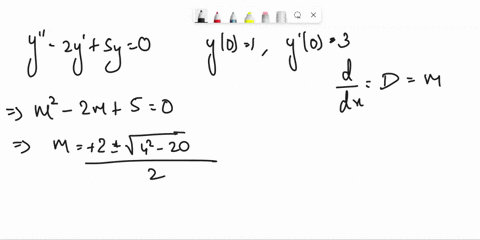 y'' - 2y' + 5y = 0    y(0) = 1, y'(0) = 3
d/dx = D = m
⇒ m² - 2m + 5 = 0
⇒ m = +2 ± √(4² - 20) / 2